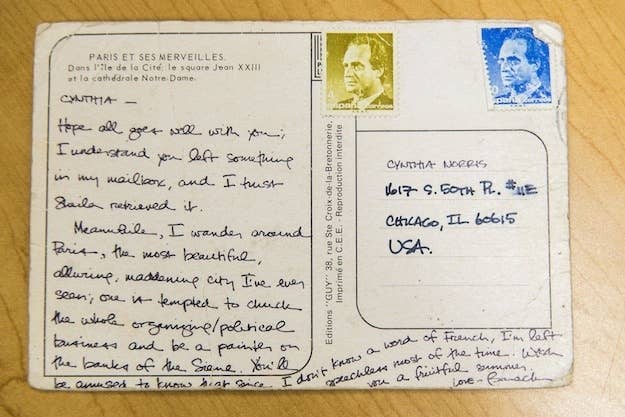 PARIS ET SES MERVEILLES.
Dans l'Île de la Cité: le square Jean XXIII
et la cathédrale Notre-Dame.
CYNTHIA —
Hope all goes well with you;
I understand you left something
in my mailbox, and I trust
Sheila retrieved it.
Meanwhile, I wander around
Paris, the most beautiful,
alluring, maddening city I've ever
seen; one is tempted to chuck
the whole organizing/political
business and be a painter on
the banks of the Siene. You'll
be amused to know that since I don't know a word of French, I'm left
speechless most of the time. Wish
you a fruitful summer.
Love - Barack
Editions "GUY" 38, rue Ste Croix-de-la-Bretonnerie,
Imprimé en C.E.E. - Reproduction interdite
españa correos
españa correos
CYNTHIA NORRIS
1617 S. 50TH PL. #
CHICAGO, IL 60615
USA.